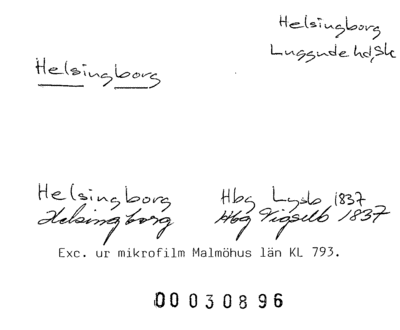 Helsingborg
Luggude hd, Sk
Helsingborg
Helsingborg Hbg Lysb 1837
Helsingborg Hbg Vigselb 1837
Exc. ur mikrofilm Malmöhus län KL 793.
00030896